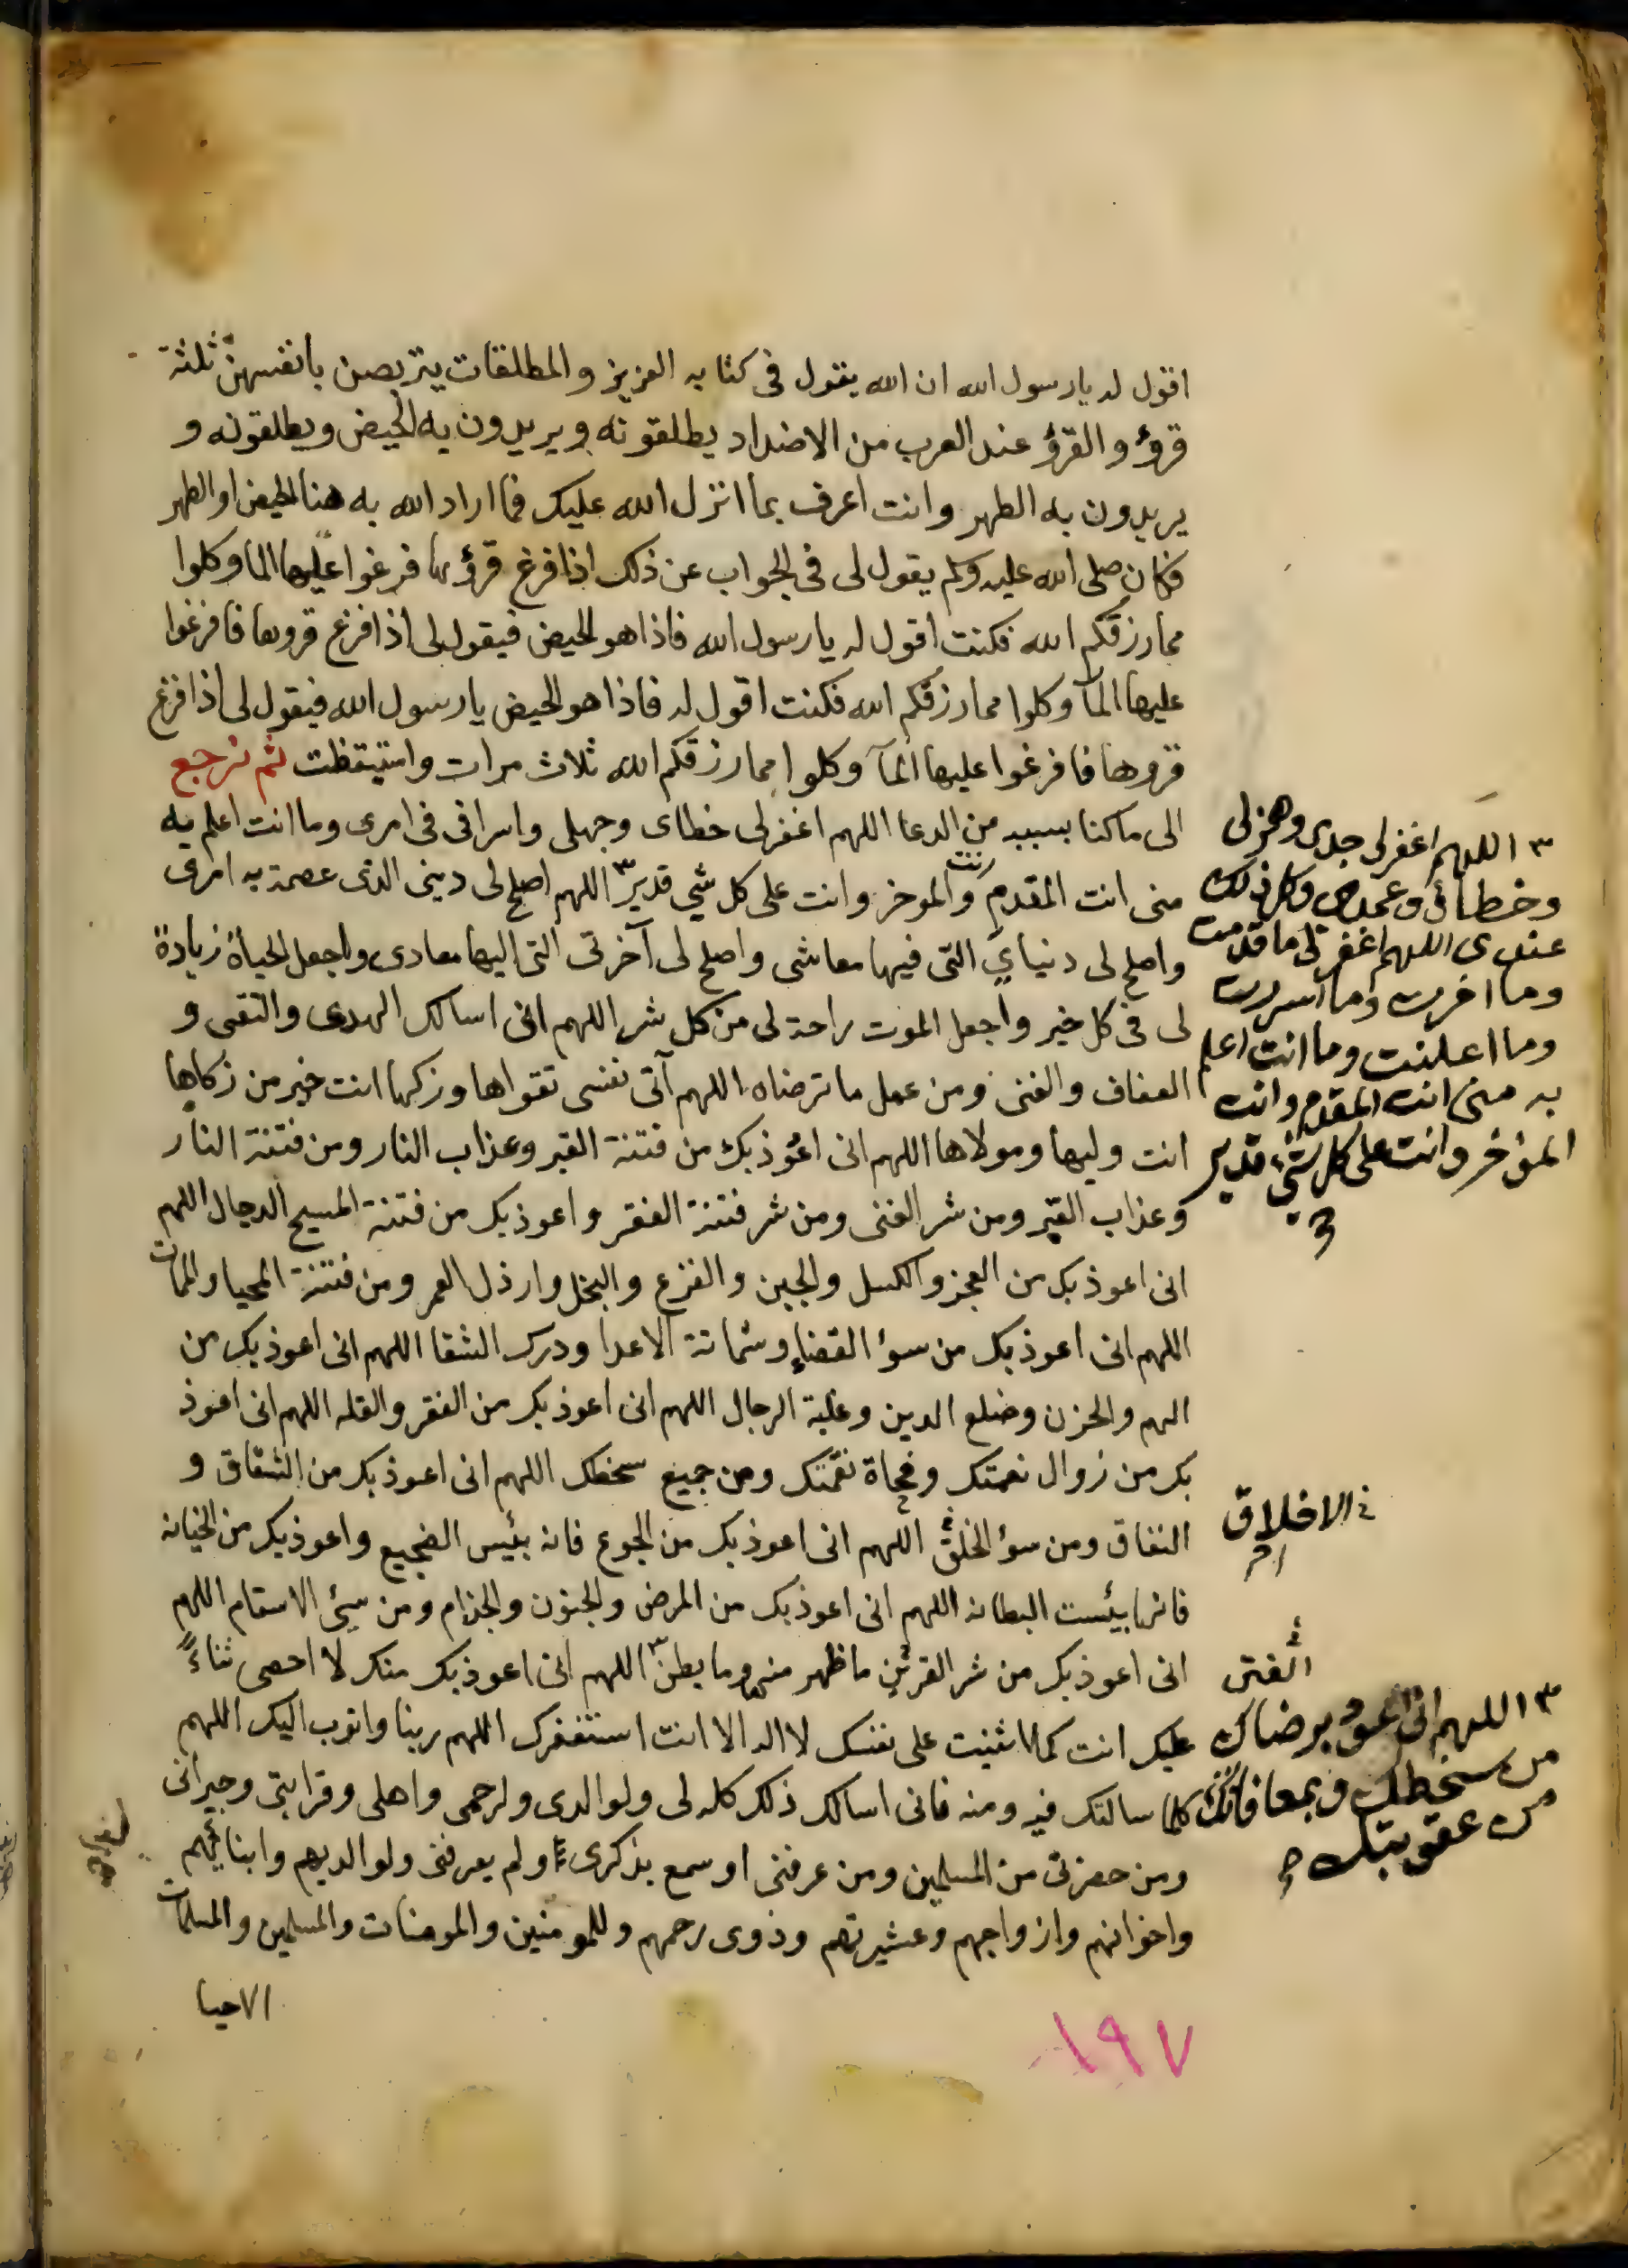 اقول له يا رسول الله ان الله يقول فى كتابه العزيز والمطلقات يتربصن بانفسهن ثلثة
قروء والقرؤ عند العرب من الاضداد يطلقونه ويريدون به الحيض ويطلقونه و
يريدون به الطهر وانت اعرف بما انزل الله عليك فما اراد الله به هنا الحيض او الطهر
فكان صلى الله عليه وسلم يقول لى فى الجواب عن ذلك اذا فرغ قرؤها فرغوا عليها الما وكلوا
مما رزقكم الله فكنت اقول له يا رسول الله فاذا هو الحيض فيقول لى اذا فرغ قروها فافرغوا
عليها المآ وكلوا مما رزقكم الله فكنت اقول له فاذا هو الحيض يا رسول الله فيقول لى اذا فرغ
قروها فافرغوا عليها المآ وكلوا مما رزقكم الله ثلاث مرات واستيقظت ثم نرجع
الى ما كنا بسببه من الدعا اللهم اغفر لى خطاى وجهلى واسرافى فى امرى وما انت اعلم به
منى انت المقدم وانت الموخر وانت على كل شي قدير ٣ اللهم اصلح لى دينى الذى عصمة به امرى
واصلح لى دنياي التى فيها معاشى واصلح لى آخرتى التى اليها معادى واجعل الحياة زيادة
لى فى كل خير واجعل الموت راحة لى من كل شر اللهم انى اسالك الهدى والتقى و
العفاف والغنى ومن عمل ما ترضاه اللهم آتى نفسى تقواها وزكها انت خير من زكاها
انت وليها ومولاها اللهم انى اعوذ بك من فتنة القبر وعذاب النار ومن فتنة النار
وعذاب القبر ومن شر الغنى ومن شر فتنة الفقر واعوذ بك من فتنة المسيح الدجال اللهم
انى اعوذ بك من العجز والكسل والجبن والفزع والبخل وارذل العمر ومن فتنة المحيا والممات
اللهم انى اعوذ بك من سوء القضاء وشماتة الاعدا ودرك الشقا اللهم انى اعوذ بك من
الهم والحزن وضلع الدين وغلبة الرجال اللهم انى اعوذ بك من الفقر والقله اللهم انى اعوذ
بك من زوال نعمتك وفجاة نقمتك ومن جميع سخطك اللهم انى اعوذ بك من الشقاق و
النفاق ومن سوء الخلق اللهم انى اعوذ بك من الجوع فانه بئيس الضجيع واعوذ بك من الخيانه
فانها بيئست البطانه اللهم انى اعوذ بك من المرض والجنون والجذام ومن سيئ الاسقام اللهم
انى اعوذ بك من شر القرئين ما ظهر منه وما بطن ٣ اللهم انى اعوذ بك منك لا احصى ثناءً
عليك انت كما اثنيت على نفسك لا اله الا انت استغفرك اللهم ربنا واتوب اليك اللهم
كلما سالتك فيه ومنه فانى اسالك ذلك كله لى ولوالدى ولرحمى واهلى وقرابتى وجيرانى
ومن حضرنى من المسلمين ومن عرفنى او سمع بذكرى او لم يعرفنى ولوالديهم وابنائيهم
واخوانهم وازواجهم وعشيرتهم وذوى رحمهم وللمومنين والمومنات والمسلمين والمسلمات
الاحيا
١٩٧
٣ اللهم اغفر لى جدى وهزلى
وخطائى وعمدى وكل ذلك
عندى اللهم اغفر لى ما قدمت
وما اخرت وما اسررت
وما اعلنت وما انت اعلم
به منى انت المقدم وانت
المؤخر وانت على كل شيء قدير
الاخلاق
الفتن
٣ اللهم انى اعوذ برضاك
من سخطك وبمعافاتك
من عقوبتك